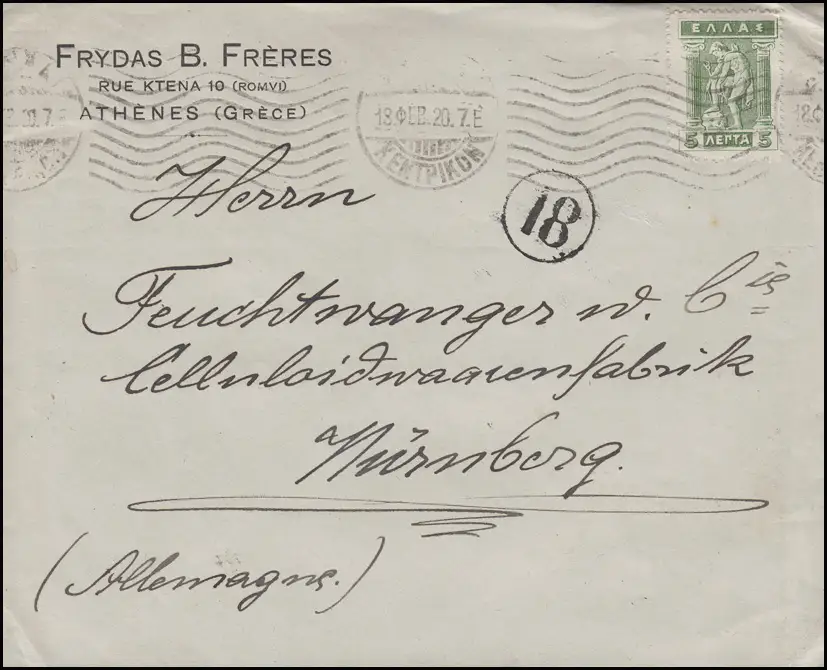 FRYDAS B. FRÈRES
RUE KTENA 10 (ROMVI)
ATHÈNES (GRÈCE)
ΕΛΛΑΣ
5 ΛΕΠΤΑ 5
18.ΦΕΒ.20.7.Ε
ΚΕΝΤΡΙΚΟΝ
18
Herrn
Feuchtwanger u. Cie
Celluloidwaarenfabrik
Nürnberg.
(Allemagne.)